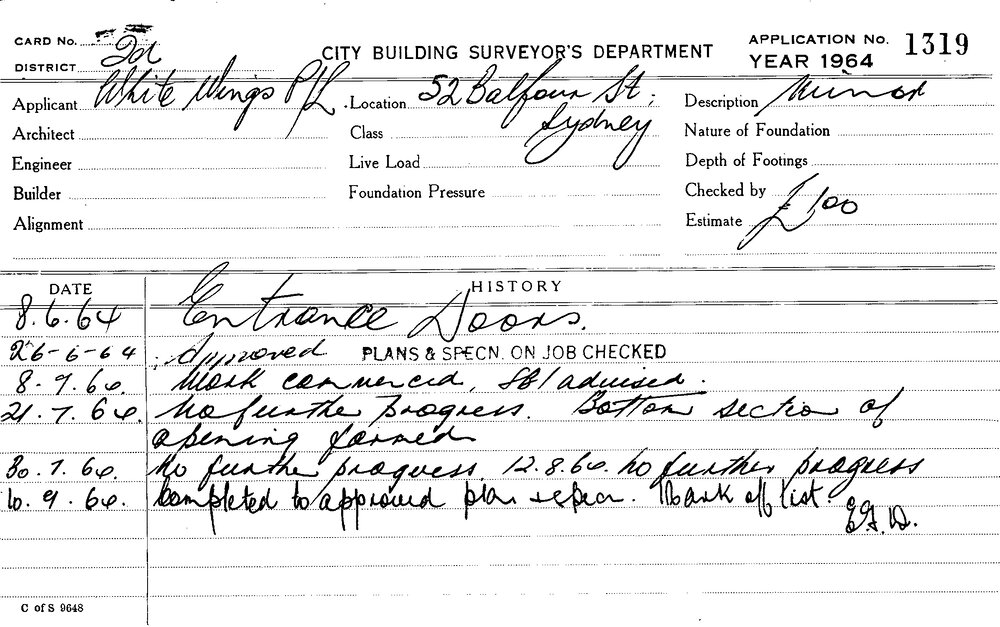 CARD No.
DISTRICT 2a
CITY BUILDING SURVEYOR'S DEPARTMENT
APPLICATION No. 1319
YEAR 1964
Applicant White Wings P/L. Location 52 Balfour St; Description Minor
Sydney
Architect Class Nature of Foundation
Engineer Live Load Depth of Footings
Builder Foundation Pressure Checked by
Alignment Estimate £100
DATE HISTORY
8.6.64 Entrance Doors.
26-6-64 Approved PLANS & SPECN. ON JOB CHECKED
8.7.64. Work commenced, advised.
21.7.64. No further progress. Bottom section of
opening formed
30.7.64. No further progress 12.8.64. No further progress
10.9.64. Completed to approved plan & specn. Mark off list.
C of S 9648